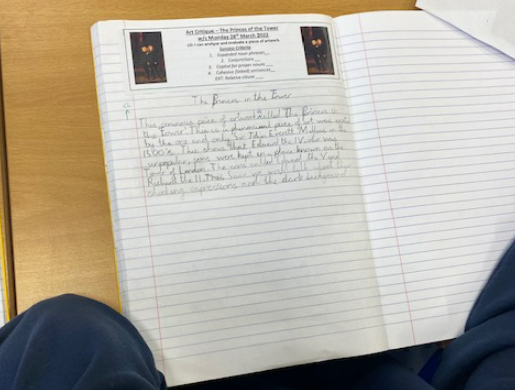 Art Critique – The Princes of the Tower
w/s Monday 28th March 2022
LO: I can analyse and evaluate a piece of artwork.
Success Criteria
1. Expanded noun phrases
2. Conjunctions
3. Capital for proper nouns
4. Cohesive (linked) sentences
EXT: Relative clause
The Princes in the Tower
This piece of artwork called The Princes in
the Tower. This is a phenomenal piece of art was
by the one and only Sir John Everett Millais in the
1800's. This shows that Edward the IV, who was
unpopular, sons were kept in a place known as the
Tower of London. The sons called Edward the V and
Richard the II. This
expressions and the dark background